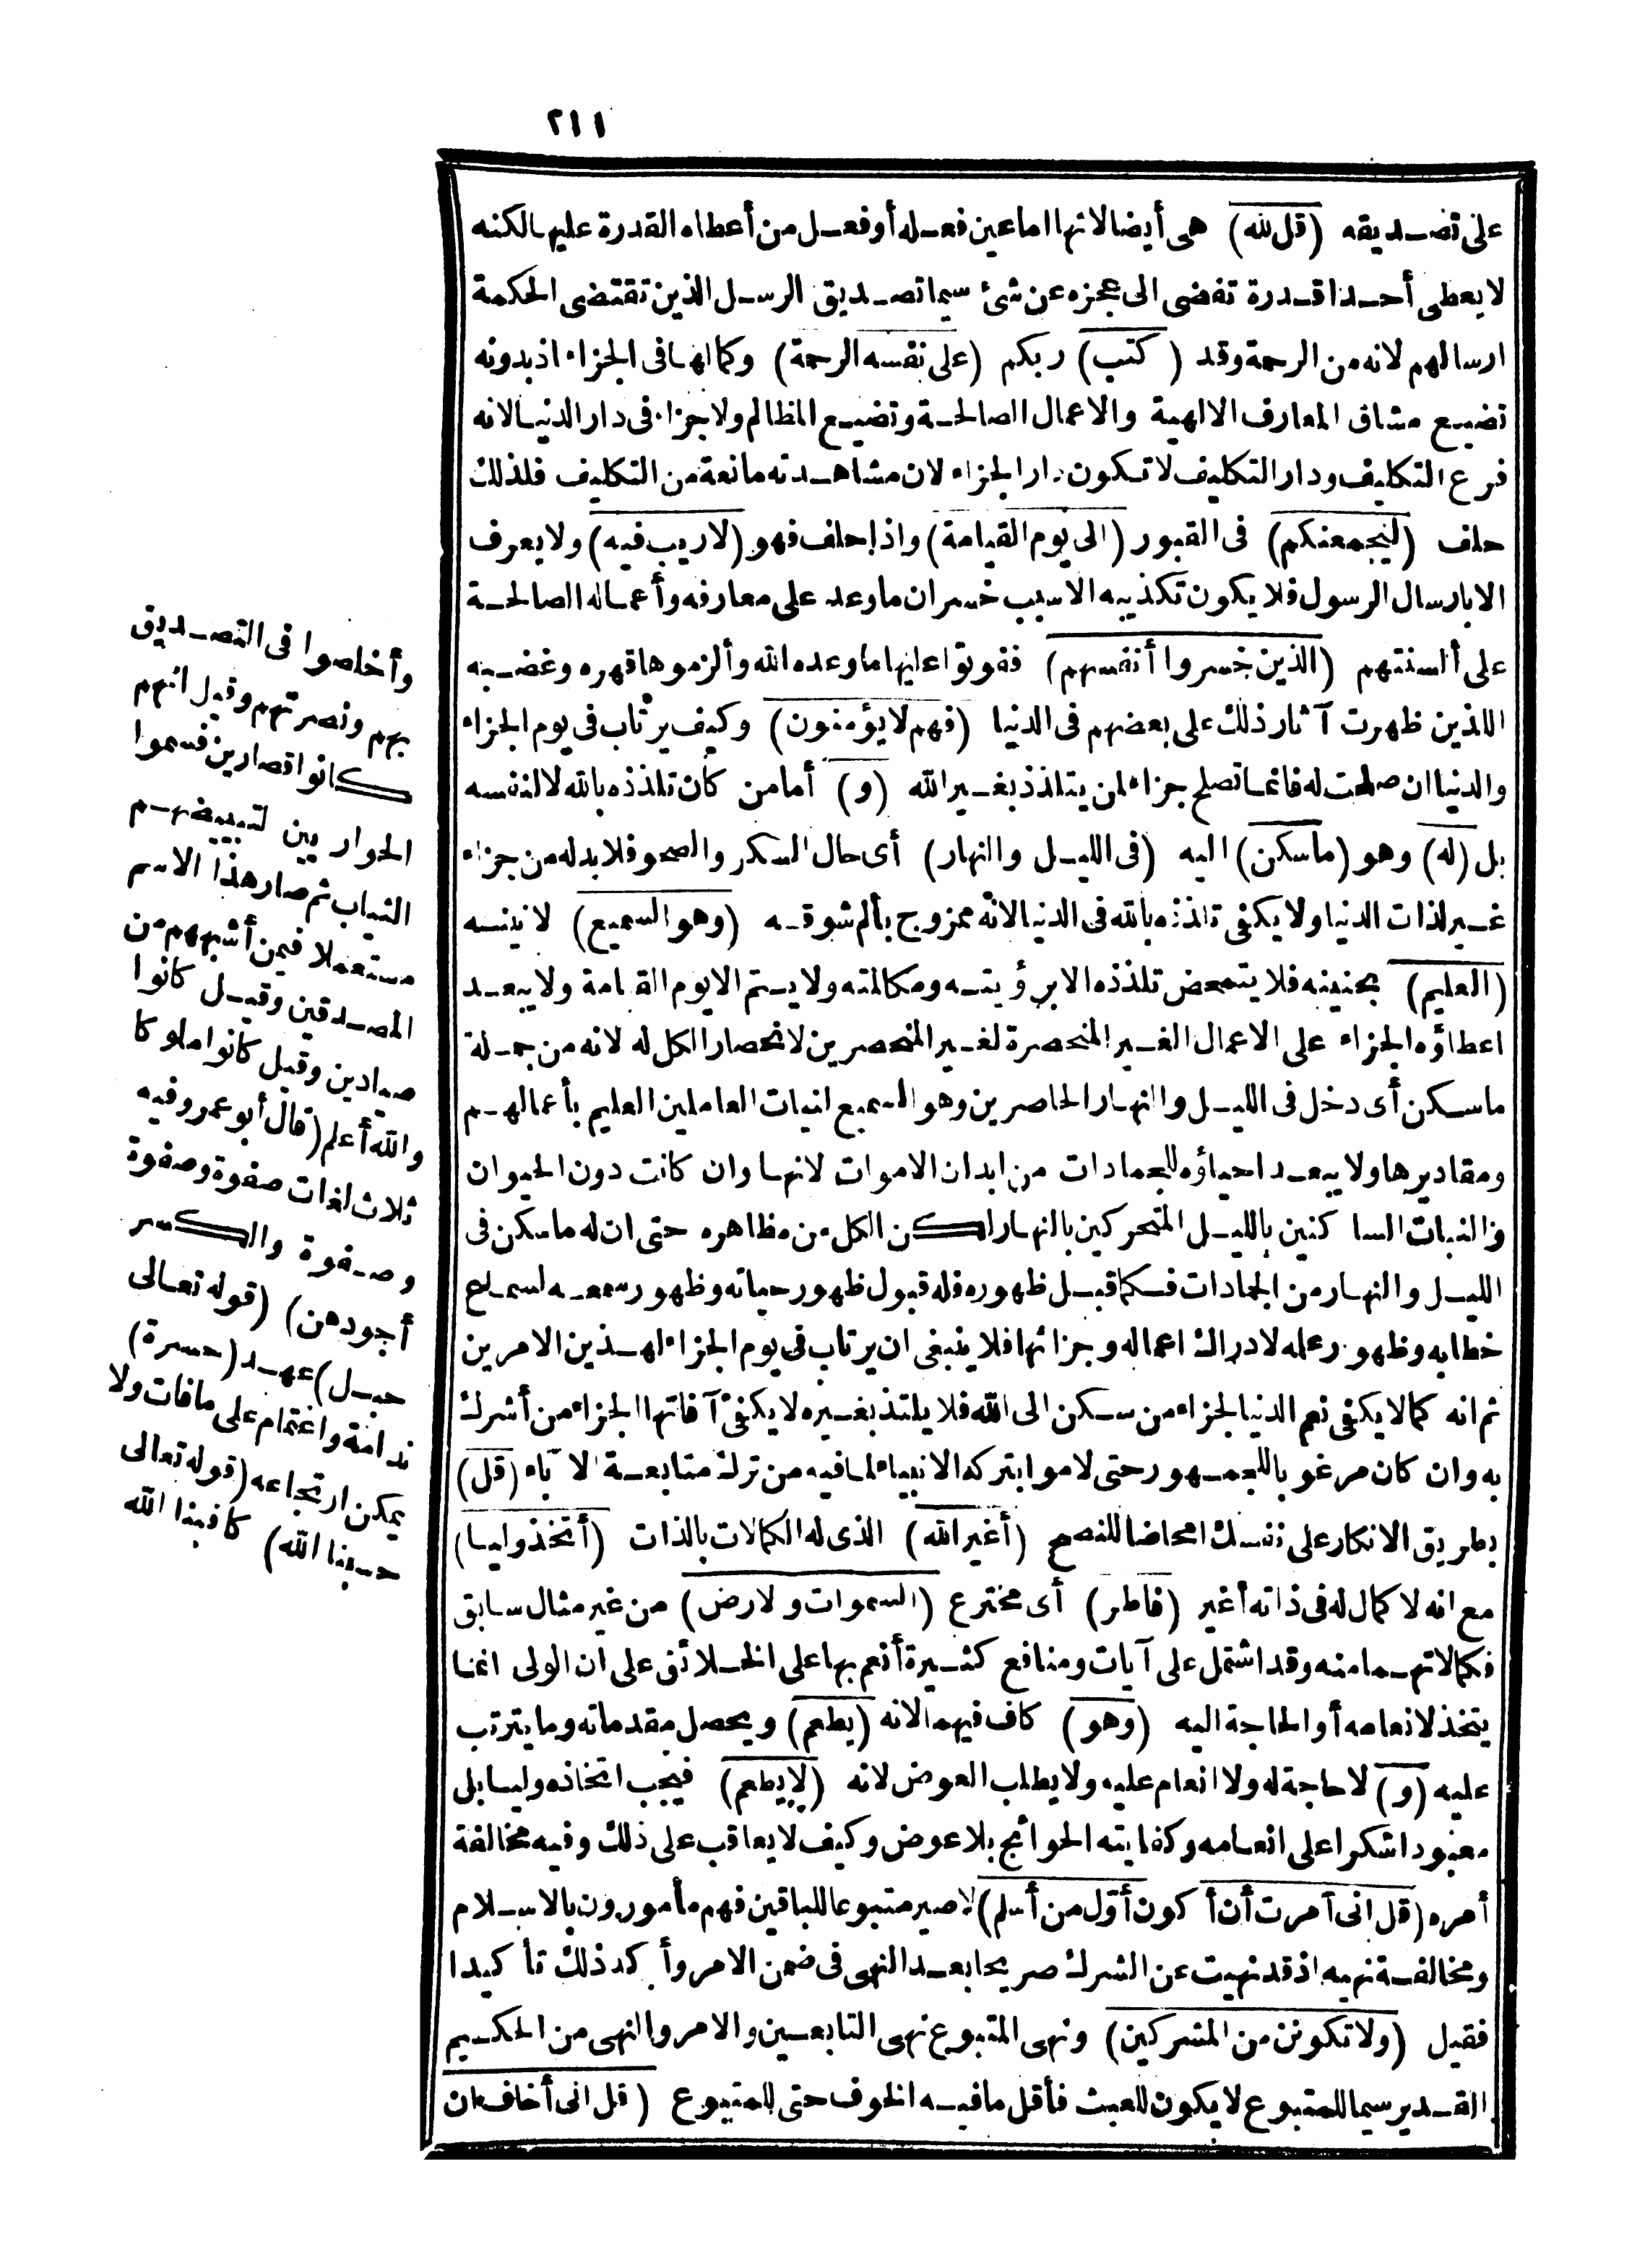 ٢١١
على تصديقه (قل لله) هى أيضا لانها اما عين فعله أو فعل من أعطاه القدرة عليها لكنه
لا يعطى أحدا قدرة تفضى الى عجزه عن شئ سيما تصديق الرسل الذين تقتضى الحكمة
ارسالهم لانه من الرحمة وقد (كتب) ربكم (على نفسه الرحمة) وكمالها فى الجزاء اذ بدونه
تضييع مشاق المعارف الالهية والاعمال الصالحة وتضييع المظالم ولا جزاء فى دار الدنيا لانه
فرع التكليف ودار التكليف لا تكون دار الجزاء لان مشاهدته مانعة من التكليف فلذلك
حلف (ليجمعنكم) فى القبور (الى يوم القيامة) واذا حلف فهو (لا ريب فيه) ولا يعرف
الا بارسال الرسول فلا يكون تكذيبه الا سبب خسران ما وعد على معارفه وأعماله الصالحة
على ألسنتهم (الذين خسروا أنفسهم) ففوتوا عليها ما وعده الله وألزموها قهره وغضبه
اللذين ظهرت آثار ذلك على بعضهم فى الدنيا (فهم لا يؤمنون) وكيف يرتاب فى يوم الجزاء
والدنيا ان صلحت له فانما تصلح جزاء لمن يتلذذ بغير الله (و) أما من كان تلذذه بالله لا لنفسه
بل (له) وهو (ما سكن) اليه (فى الليل والنهار) أى حال السكر والصحو فلا بد له من جزاء
غير لذات الدنيا ولا يكفى تلذذه بالله فى الدنيا لانه ممزوج بألم شوقه (وهو السميع) لانينه
(العليم) بحنينه فلا يتمحض تلذذه الا برؤيته ومكالمته ولا يتم الا يوم القيامة ولا يبعد
اعطاؤه الجزاء على الاعمال الغير المنحصرة لغير المنحصرين لانحصار الكل له لانه من جملة
ما سكن أى دخل فى الليل والنهار الحاصرين وهو السميع لنيات العاملين العليم بأعمالهم
ومقاديرها ولا يبعد احياؤه للجمادات من ابدان الاموات لانها وان كانت دون الحيوان
والنبات الساكنين بالليل المتحركين بالنهار لكن الكل من مظاهره حتى ان له ما سكن فى
الليل والنهار من الجمادات فكما قبل ظهوره فله قبول ظهور حياته وظهور سمعه لسماع
خطابه وظهور علمه لادراك اعماله وجزائها فلا ينبغى ان يرتاب فى يوم الجزاء لهذين الامرين
ثم انه كما لا يكفى نعم الدنيا لجزاء من سكن الى الله فلا يلتذ بغيره لا يكفى آفاتها الجزاء من أشرك
به وان كان مرغوبا للجمهور حتى لاموا بتركه الانبياء لما فيه من ترك متابعة الآباء (قل)
بطريق الانكار على نفسك امحاضا للنصح (أغير الله) الذى له الكمالات بالذات (أتخذ وليا)
مع انه لا كمال له فى ذاته أغير (فاطر) أى مخترع (السموات والارض) من غير مثال سابق
فكمالاتهما منه وقد اشتمل على آيات ومنافع كثيرة أنعم بها على الخلائق على ان الولى انما
يتخذ لانعامه أو الحاجة اليه (وهو) كاف فيهما لانه (يطعم) ويحصل مقدماته وما يترتب
عليه (و) لا حاجة له ولا انعام عليه ولا يطلب العوض لانه (لا يطعم) فيجب اتخاذه وليا بل
معبودا شكرا على انعامه وكفايته الحوائج بلا عوض وكيف لا يعاقب على ذلك وفيه مخالفة
أمره (قل انى أمرت أن أكون أول من أسلم) لاصير متبوعا للباقين فهم مأمورون بالاسلام
ومخالفة نهيه اذ قد نهيت عن الشرك صريحا بعد النهى فى ضمن الامر وأكد ذلك تأكيدا
فقيل (ولا تكونن من المشركين) ونهى المتبوع نهى التابعين والامر والنهى من الحكيم
القدير سيما للمتبوع لا يكون للعبث فأقل ما فيه الخوف حتى للمتبوع (قل انى أخاف ان
وأخلصوا فى التصديق
بهم ونصرتهم وقيل انهم
كانوا قصارين فسموا
الحواريين لتبييضهم
الثياب ثم صار هذا الاسم
مستعملا فيمن أشبههم من
المصدقين وقيل كانوا
صيادين وقيل كانوا ملوكا
والله أعلم (قال أبو عمرو فيه
ثلاث لغات صفوة وصفوة
وصفوة والكسر
أجودهن) (قوله تعالى
حبل) عهد (حسرة)
ندامة واغتمام على ما فات ولا
يمكن ارتجاعه (قوله تعالى
حسبنا الله) كافينا الله